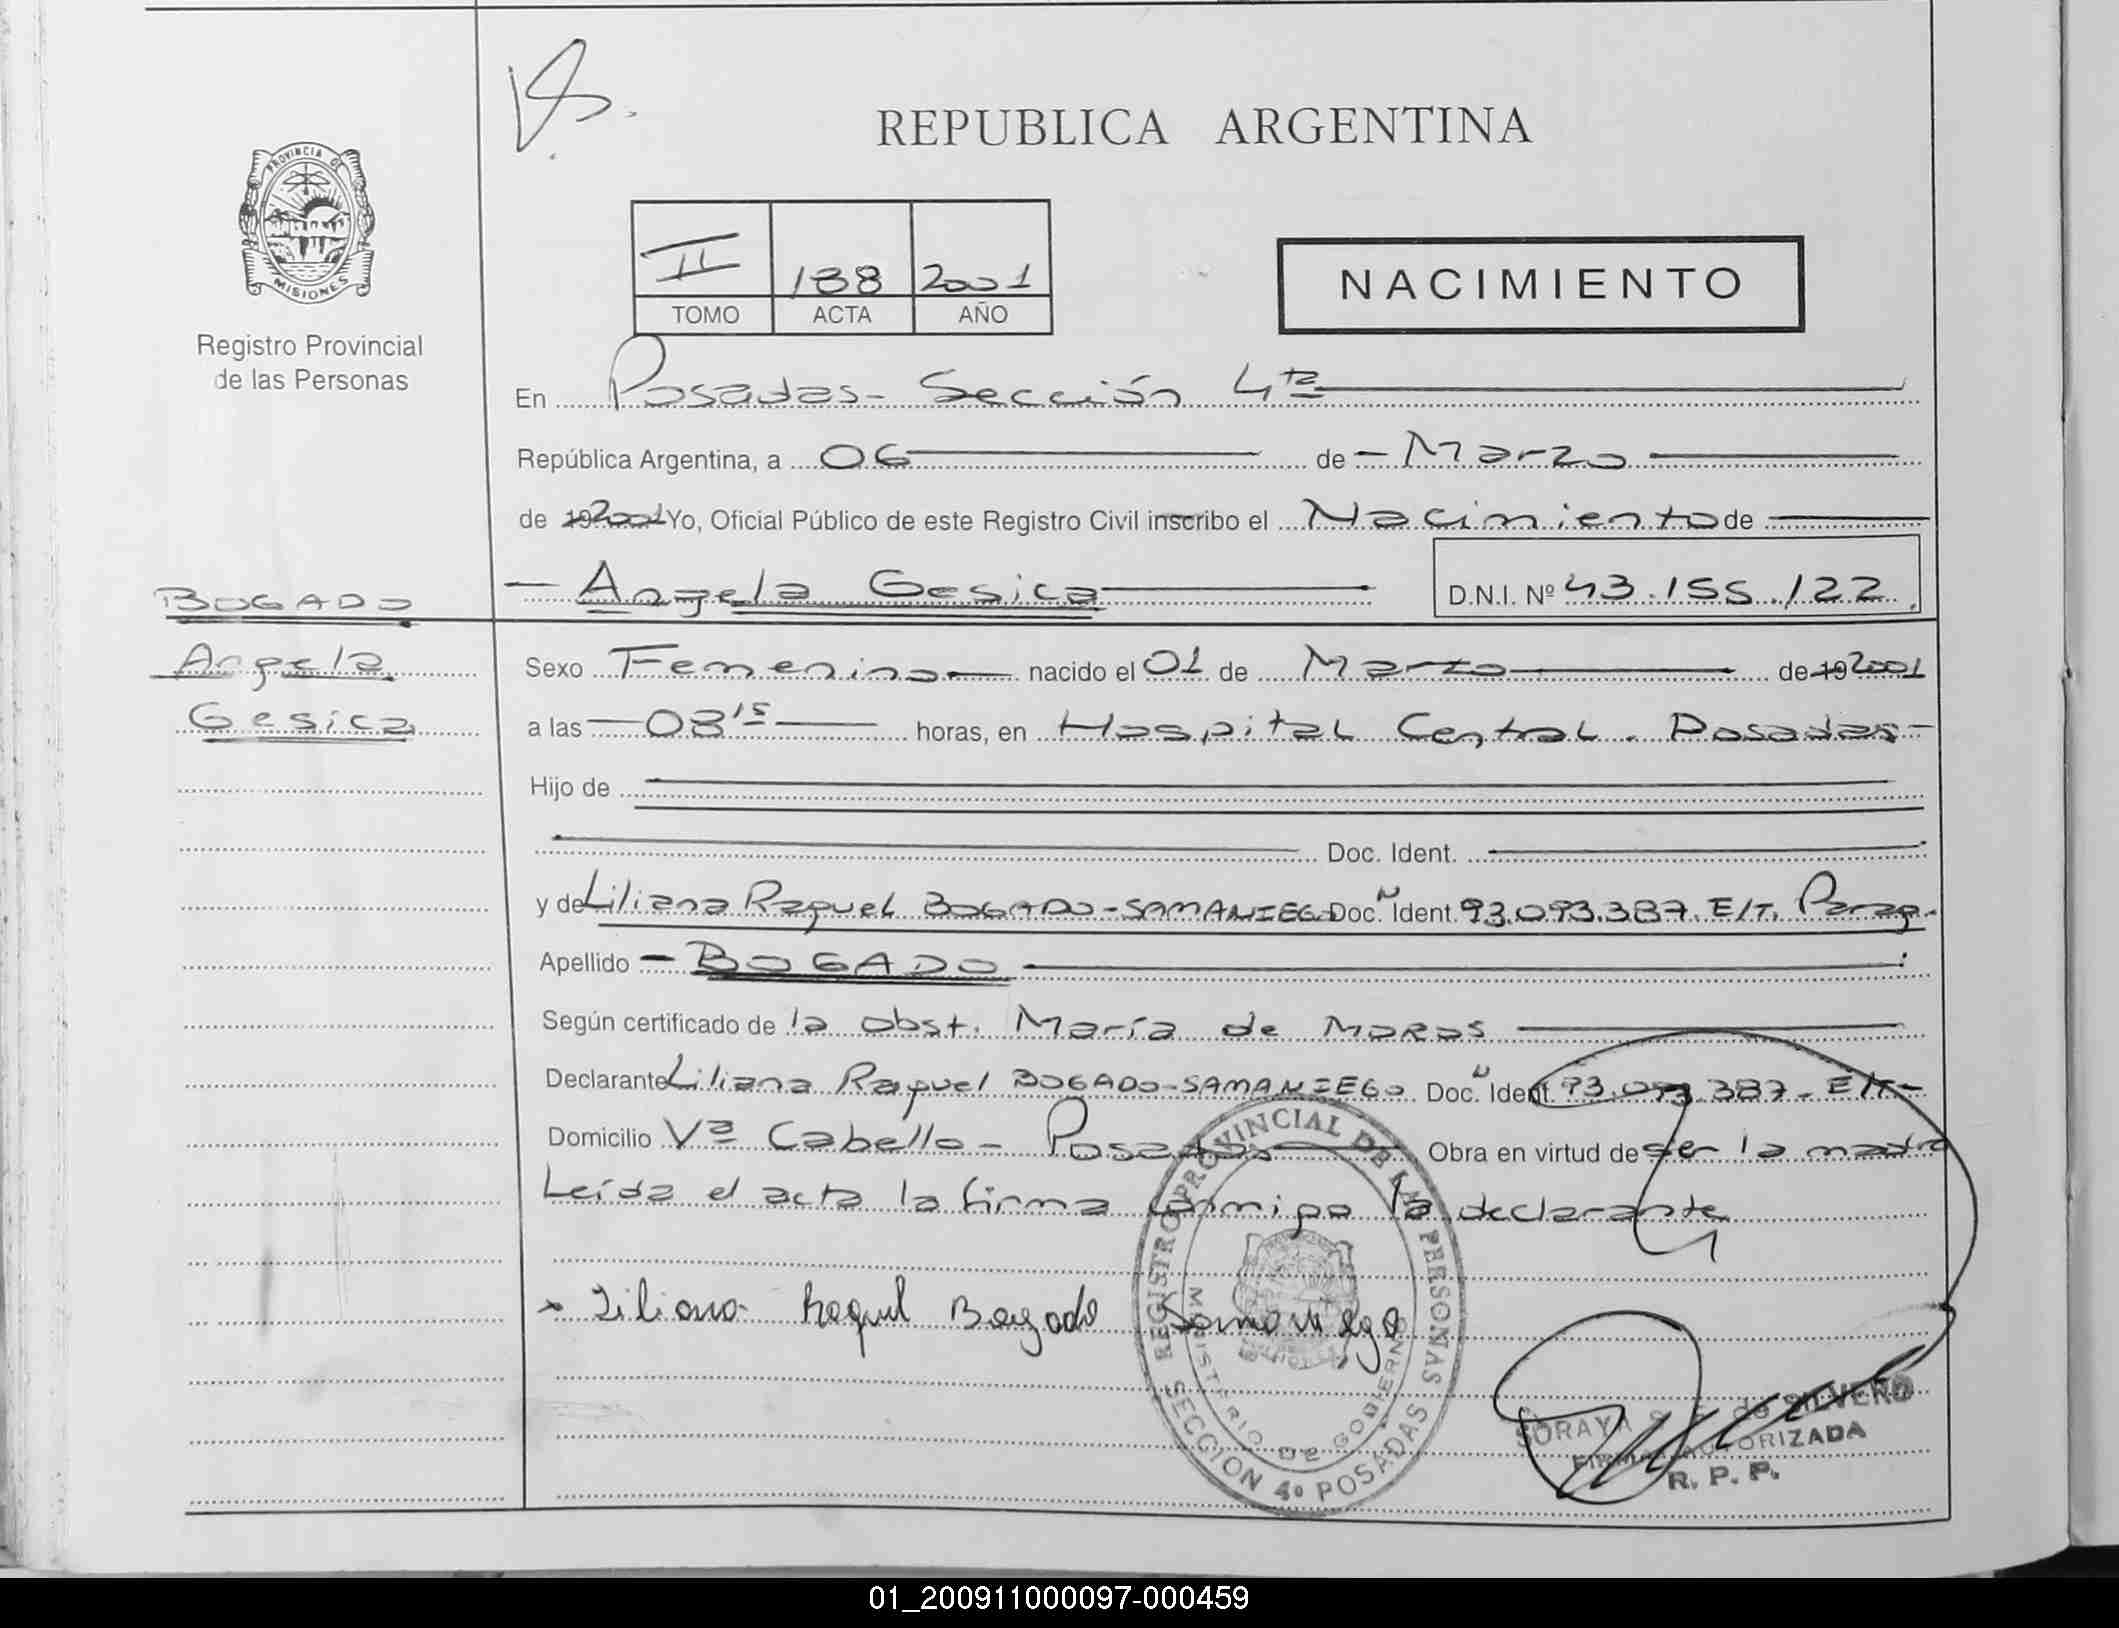 REPUBLICA ARGENTINA
PROVINCIA DE
MISIONES
Registro Provincial
de las Personas
II 188 2001
TOMO ACTA AÑO
NACIMIENTO
En Posadas - Sección 4ta
República Argentina, a 06 de Marzo
de 19 2001 Yo, Oficial Público de este Registro Civil inscribo el Nacimiento de
Angela Gesica
D.N.I. Nº 43.155.122
BOGADO
Angela
Gesica
Sexo Femenino nacido el 01 de Marzo de 19 2001
a las 08 15 horas, en Hospital Central. Posadas -
Hijo de
Doc. Ident.
y de Liliana Raquel BOGADO-SAMANIEGO Doc. N Ident. 93.093.387. E/T. Parag.
Apellido BOGADO
Según certificado de la obst. María de Moras
Declarante Liliana Raquel BOGADO-SAMANIEGO Doc. N Ident. 93.093.387. E/T-
Domicilio Vª Cabello - Posadas Obra en virtud de ser la madre
Leída el acta la firma conmigo la declarante
Liliana Raquel Bogado Samaniego
REGISTRO PROVINCIAL DE LAS PERSONAS
MINISTERIO DE GOBIERNO
SECCION 4º POSADAS
SORAYA de SILVERO
FIRMA AUTORIZADA
R. P. P.
01_200911000097-000459